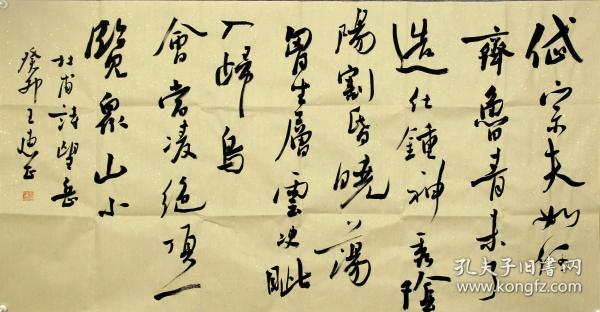 岱宗夫如何
齊魯青未了
造化鍾神秀陰
陽割昏曉蕩
胷生層雲決眦
入歸鳥
會當凌絕頂一
覽眾山小
杜甫詩望岳
癸卯王
孔夫子旧书网
www.kongfz.com